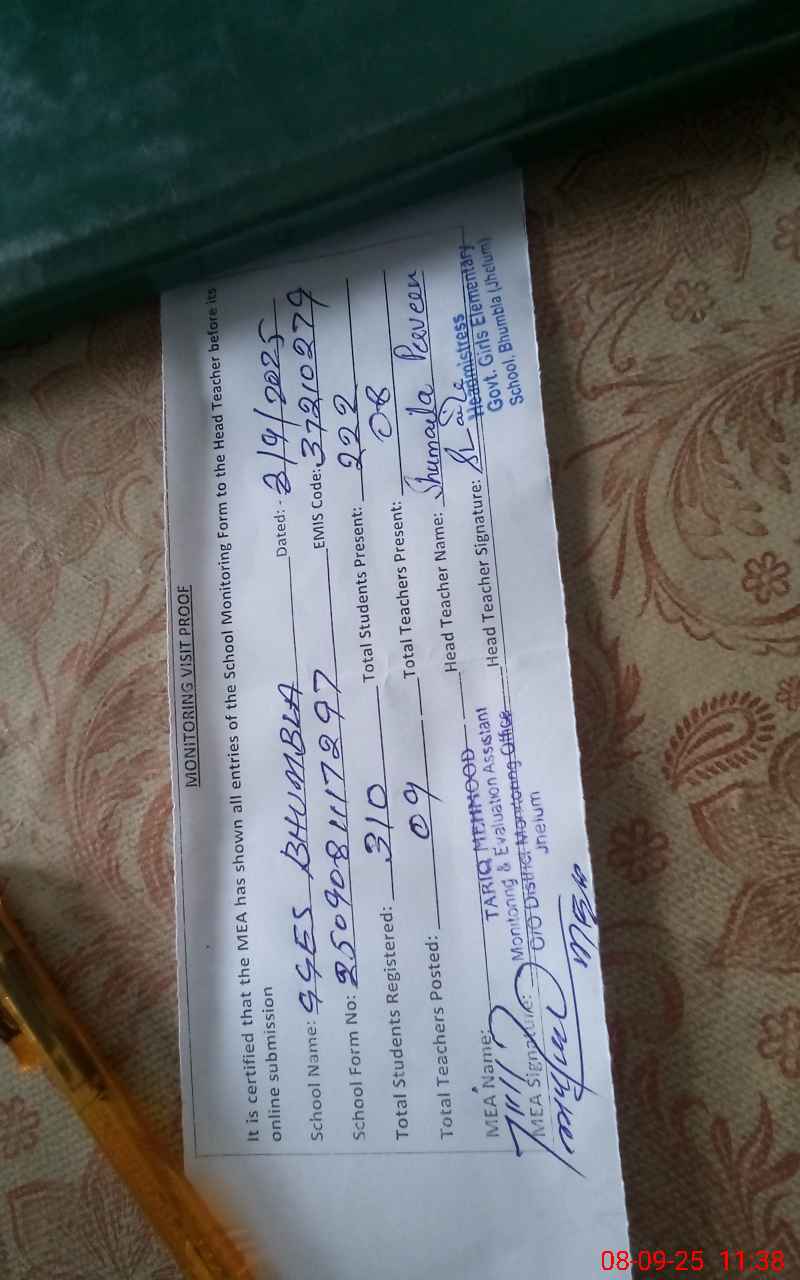 MONITORING VISIT PROOF
It is certified that the MEA has shown all entries of the School Monitoring Form to the Head Teacher before its
online submission
School Name: GGES BHUMBLA Dated: - 8/9/2025
School Form No: 250908117297 EMIS Code: 37210279
Total Students Registered: 310 Total Students Present: 222
Total Teachers Posted: 09 Total Teachers Present: 08
MEA Name: TARIQ MEHMOOD Head Teacher Name: Shumaila Perveen
Monitoring & Evaluation Assistant
MEA Signature: O/O District Monitoring Office Head Teacher Signature:
Jhelum
Headmistress
Govt. Girls Elementary
School, Bhumbla (Jhelum)
MEA
08-09-25 11:38